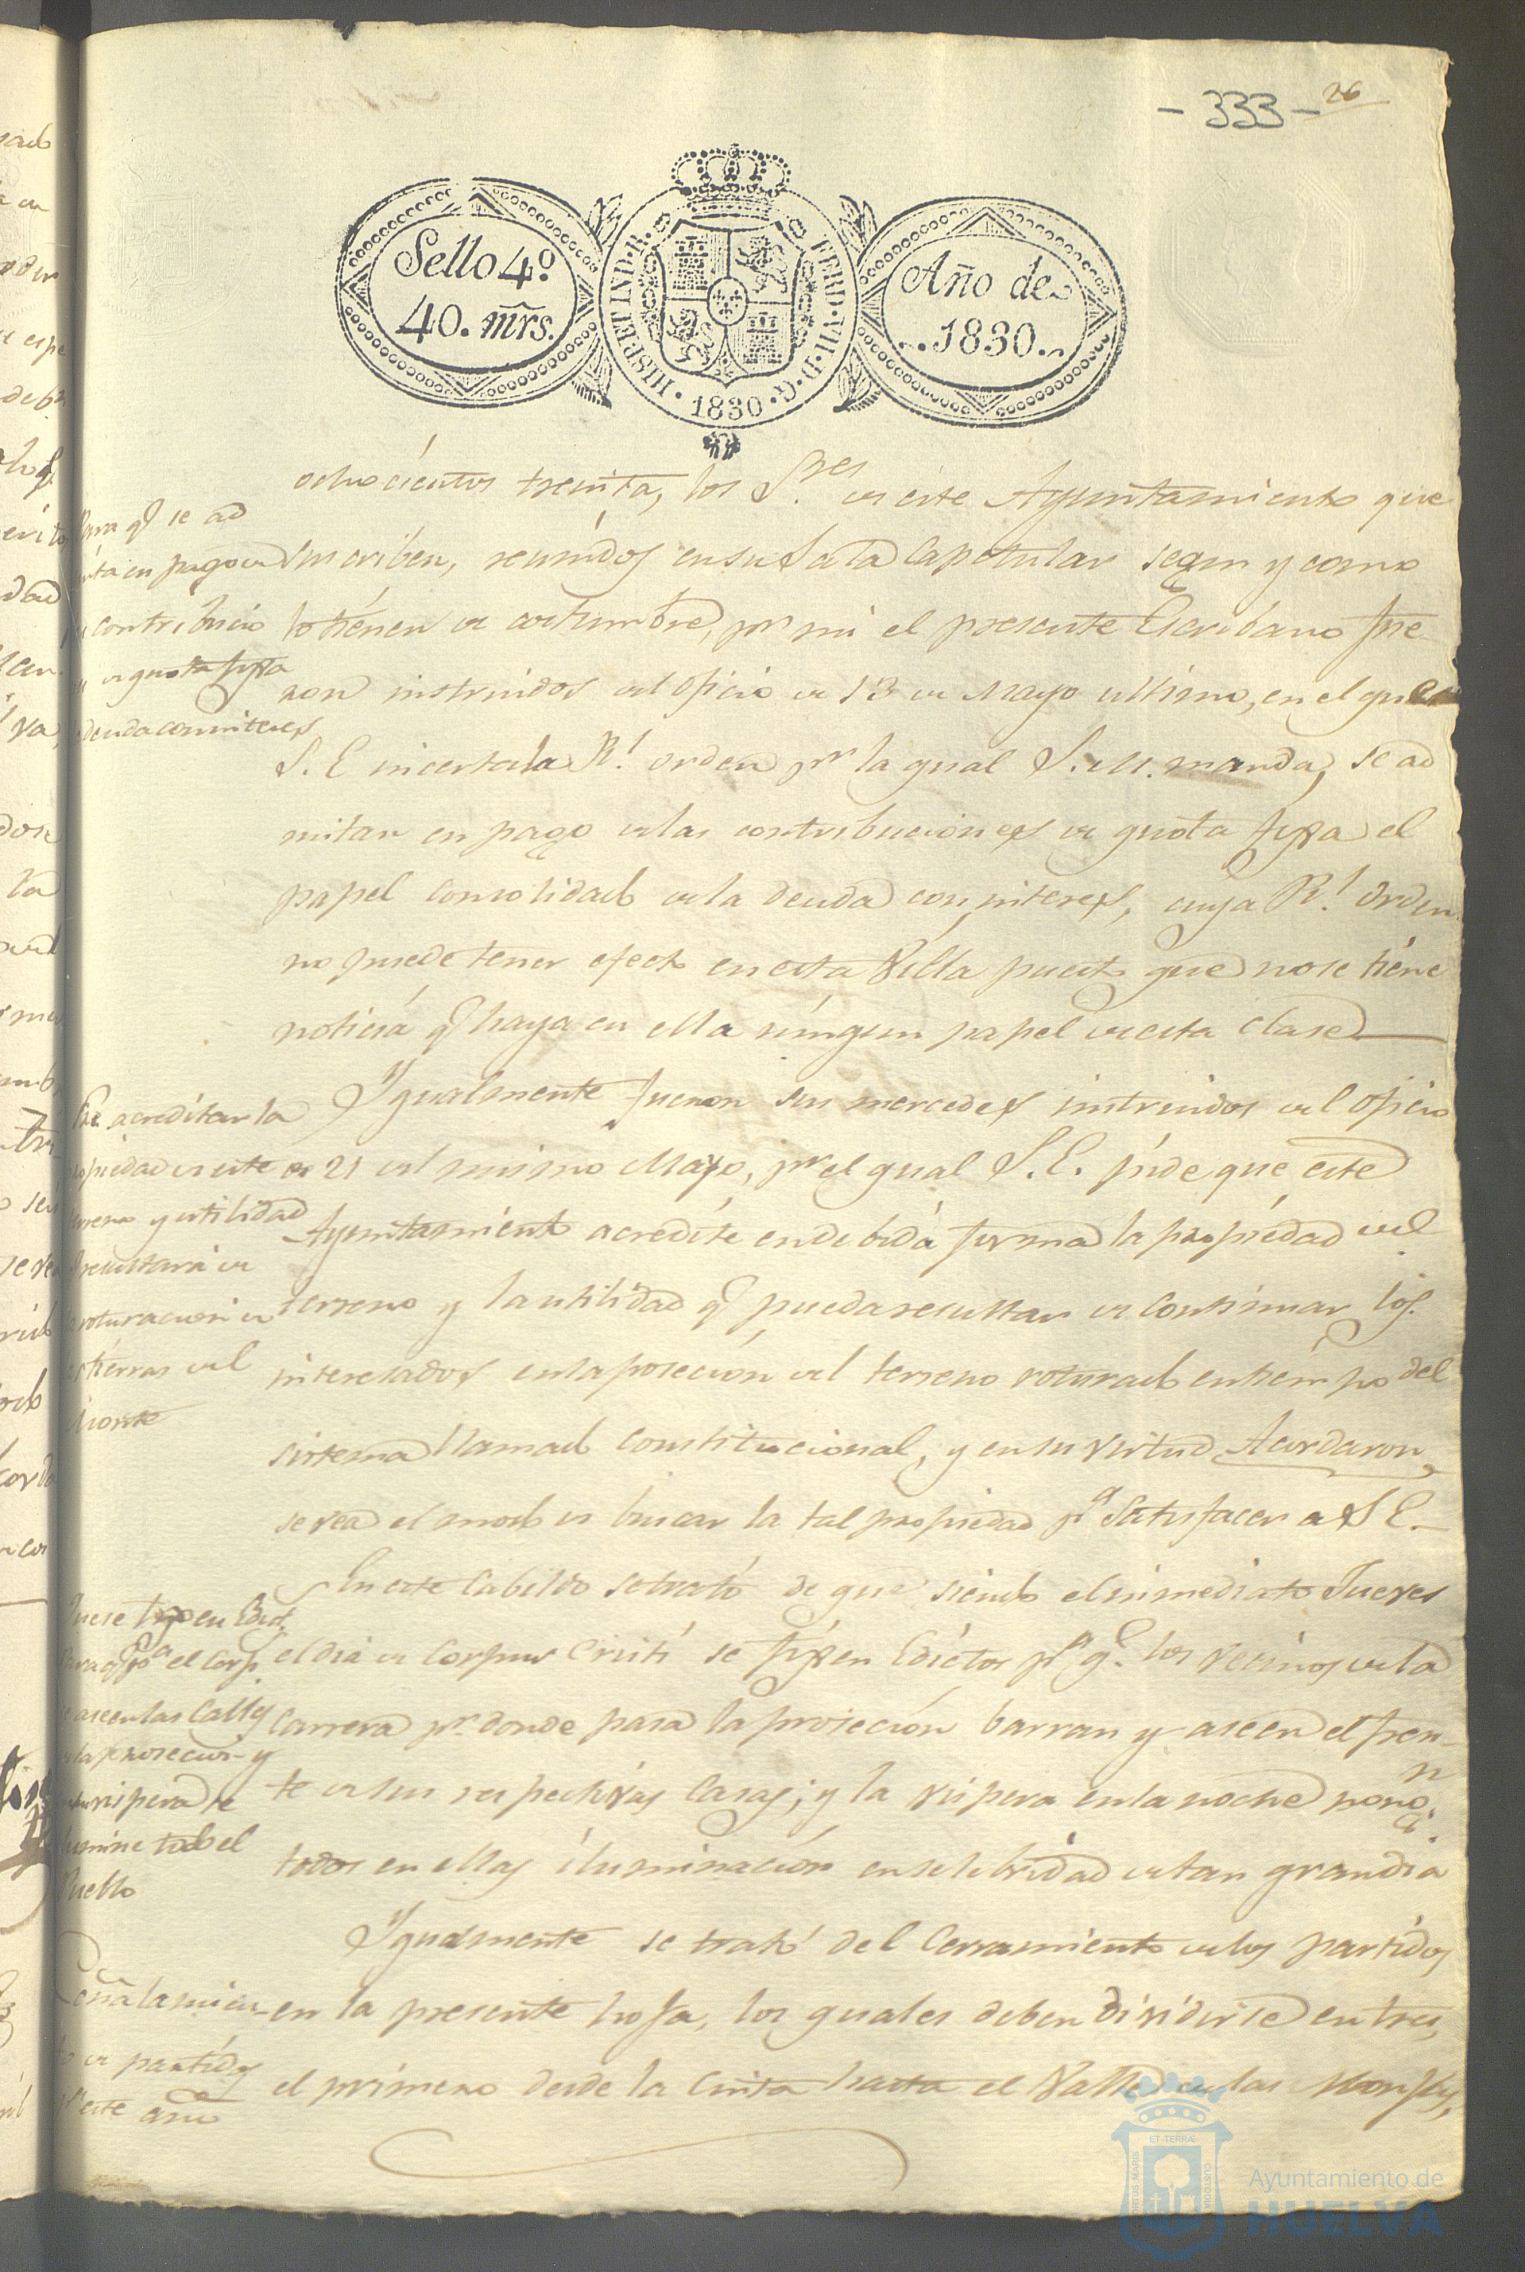 - 333 - 26
Sello 4º
40. mrs.
HISPET IND. R.
FERD. VII. D. G.
1830
Año de
1830
ochocientos treinta, los S.res de este Ayuntamiento que
suscriben, reunidos en su Sala Capitular segun y como
lo tienen de costumbre, pr mi el presente Escribano fue-
ron instruidos del oficio de 13 de Mayo ultimo, en el que
S. E incerta la Rl orden pr la qual S. M. manda, se ad
mitan en pago de las contribuciones de quota fixa el
papel consolidado de la deuda con interes, cuya Rl orden
no puede tener efecto en esta Villa puesto que no se tiene
noticia q.e haya en ella ningun papel de esta clase
Para q.e se ad
mita en pago de
contribucio
de quota fixa
deuda con interes
Ygualmente fueron sus mercedes instruidos del oficio
de 21 del mismo Mayo, pr el qual S. E. pide que este
Ayuntamiento acredite en debida forma la propiedad del
terreno y la utilidad q.e pueda resultar de continuar los
interesados en la posecion del terreno roturado en tiempo del
sistema llamado constitucional, y en su virtud Acordaron
se vea el modo de buscar la tal propiedad pa satisfacer a S E.
acreditar la
propiedad de este
terreno y utilidad
resultará de
la roturacion de
las tierras del
Monte
En este Cabildo se trató de que siendo el inmediato Jueves
el dia de Corpus Cristi se fixen Edictos pa q.e los vecinos de la
carrera pr donde pasa la prosecion barran y aseen el fren-
te de sus respectivas casas; y la vispera en la noche pongn
todos en ellas iluminacion en selebridad de tan gran dia
en Edict.
para q.e pa el Corp.
se aseen las Calles
de la prosecion y
vispera se
ilumine todo el
Pueblo
Ygualmente se trató del Cerramiento de los partidos
en la presente hoja, los quales deben dividirse en tres,
el primero desde la Cinta hasta el Valle de las
Señalamien-
to de partidos
pa este año
Ayuntamiento de
HUELVA